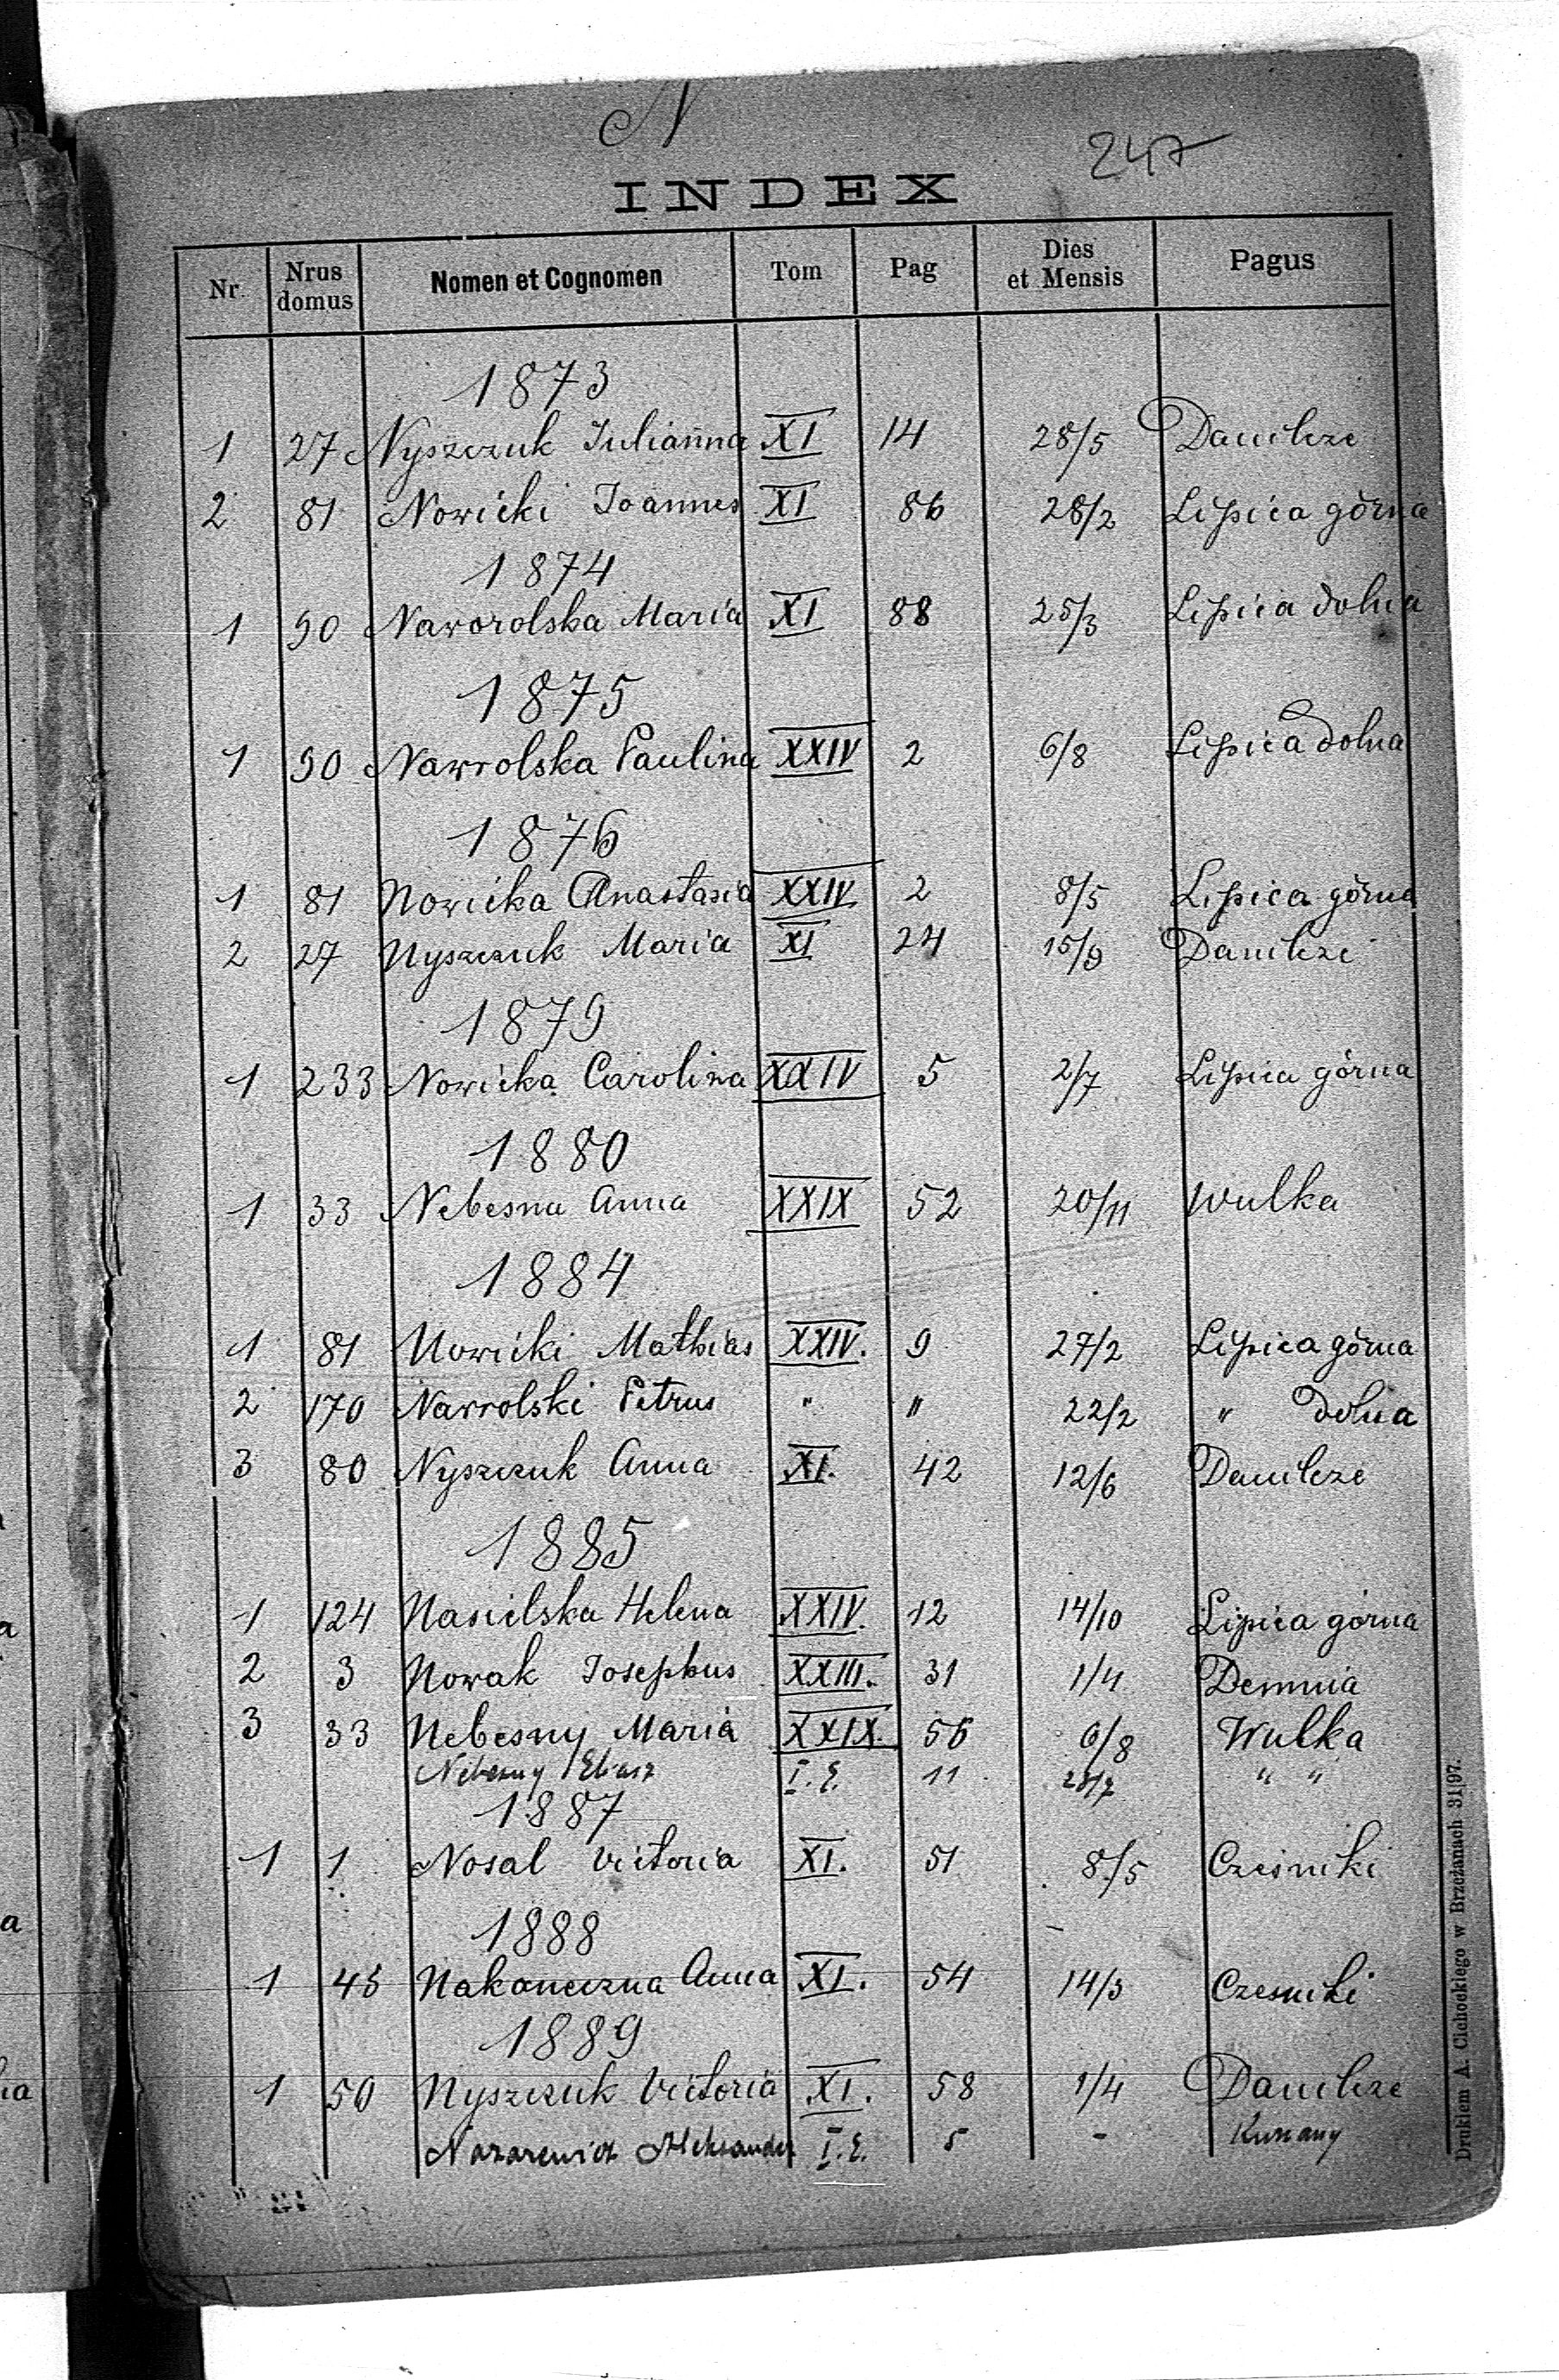 N
247
INDEX
Nr. Nrus domus Nomen et Cognomen Tom Pag Dies et Mensis Pagus
1873
1 27 Nyszczuk Julianna XI 14 28/5 Danilcze
2 81 Nowicki Joannes XI 86 28/2 Lipica górna
1874
1 90 Naworolska Maria XI 88 25/3 Lipica dolna
1875
1 90 Nawrolska Paulina XXIV 2 6/8 Lipica dolna
1876
1 81 Nowicka Anastasia XXIV 2 8/5 Lipica górna
2 27 Nyszczuk Maria XI 24 15/9 Danilcze
1879
1 233 Nowicka Carolina XXIV 5 2/7 Lipica górna
1880
1 33 Nebesna Anna XXIX 52 20/11 Wulka
1884
1 81 Nowicki Mathias XXIV. 9 27/2 Lipica górna
2 170 Nawrolski Petrus " " 22/2 " dolna
3 80 Nyszczuk Anna XI. 42 12/6 Danilcze
1885
1 124 Nasielska Helena XXIV. 12 14/10 Lipica górna
2 3 Nowak Josephus XXIII. 31 1/4 Demnia
3 33 Nebesny Maria XXIX. 56 6/8 Wulka
Nebesny Eliasz I. E. 11 " "
1887
1 1 Nosal Victoria XI. 51 8/5 Cześniki
1888
1 45 Nakoneczna Anna XI. 54 14/3 Czesniki
1889
1 50 Nyszczuk Victoria XI. 58 1/4 Danilcze
Nazarewicz Aleksander I. E. 5 - Kunany
Drukiem A. Cichockiego w Brzeżanach 31|97.